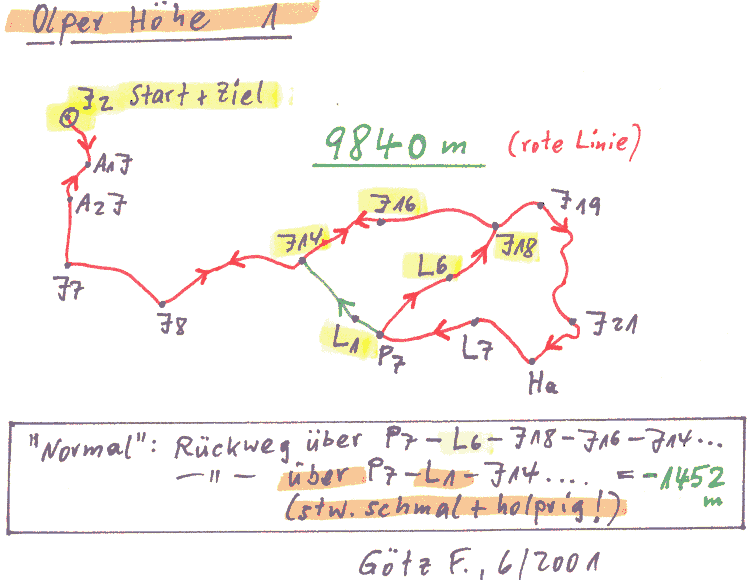 Olper Höhe 1
J2 Start + Ziel
9840 m (rote Linie)
A1J
A2J
J16
J19
J14
J18
L6
J7
J8
L1
P7
L7
J21
Ha
"Normal": Rückweg über P7 – L6 – J18 – J16 – J14 ...
— " — über P7 – L1 – J14 .... = -1452 m
(stw. schmal + holprig!)
Götz F., 6/2001